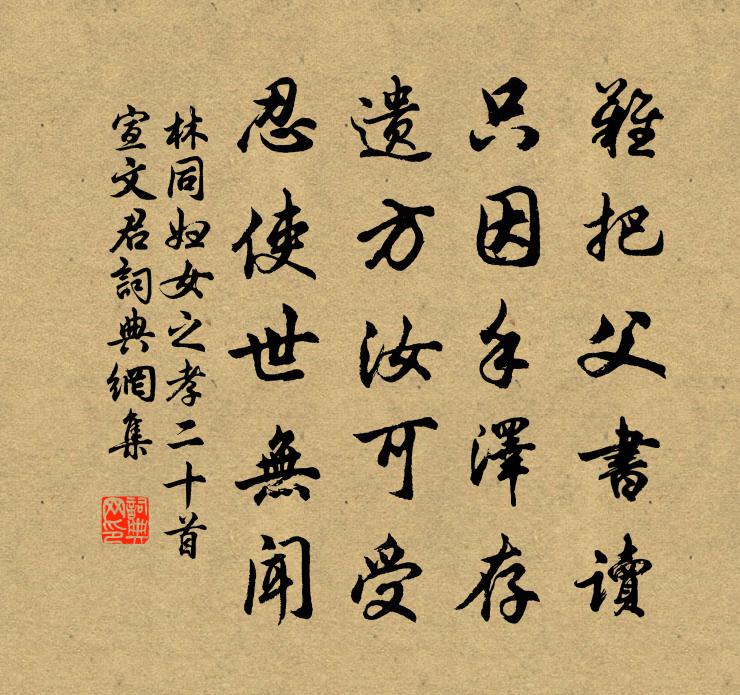 難把父書讀
只因手澤存
遺方汝可受
忍使世無聞
林同妇女之孝二十首
宣文君詞典網集
詞典网印